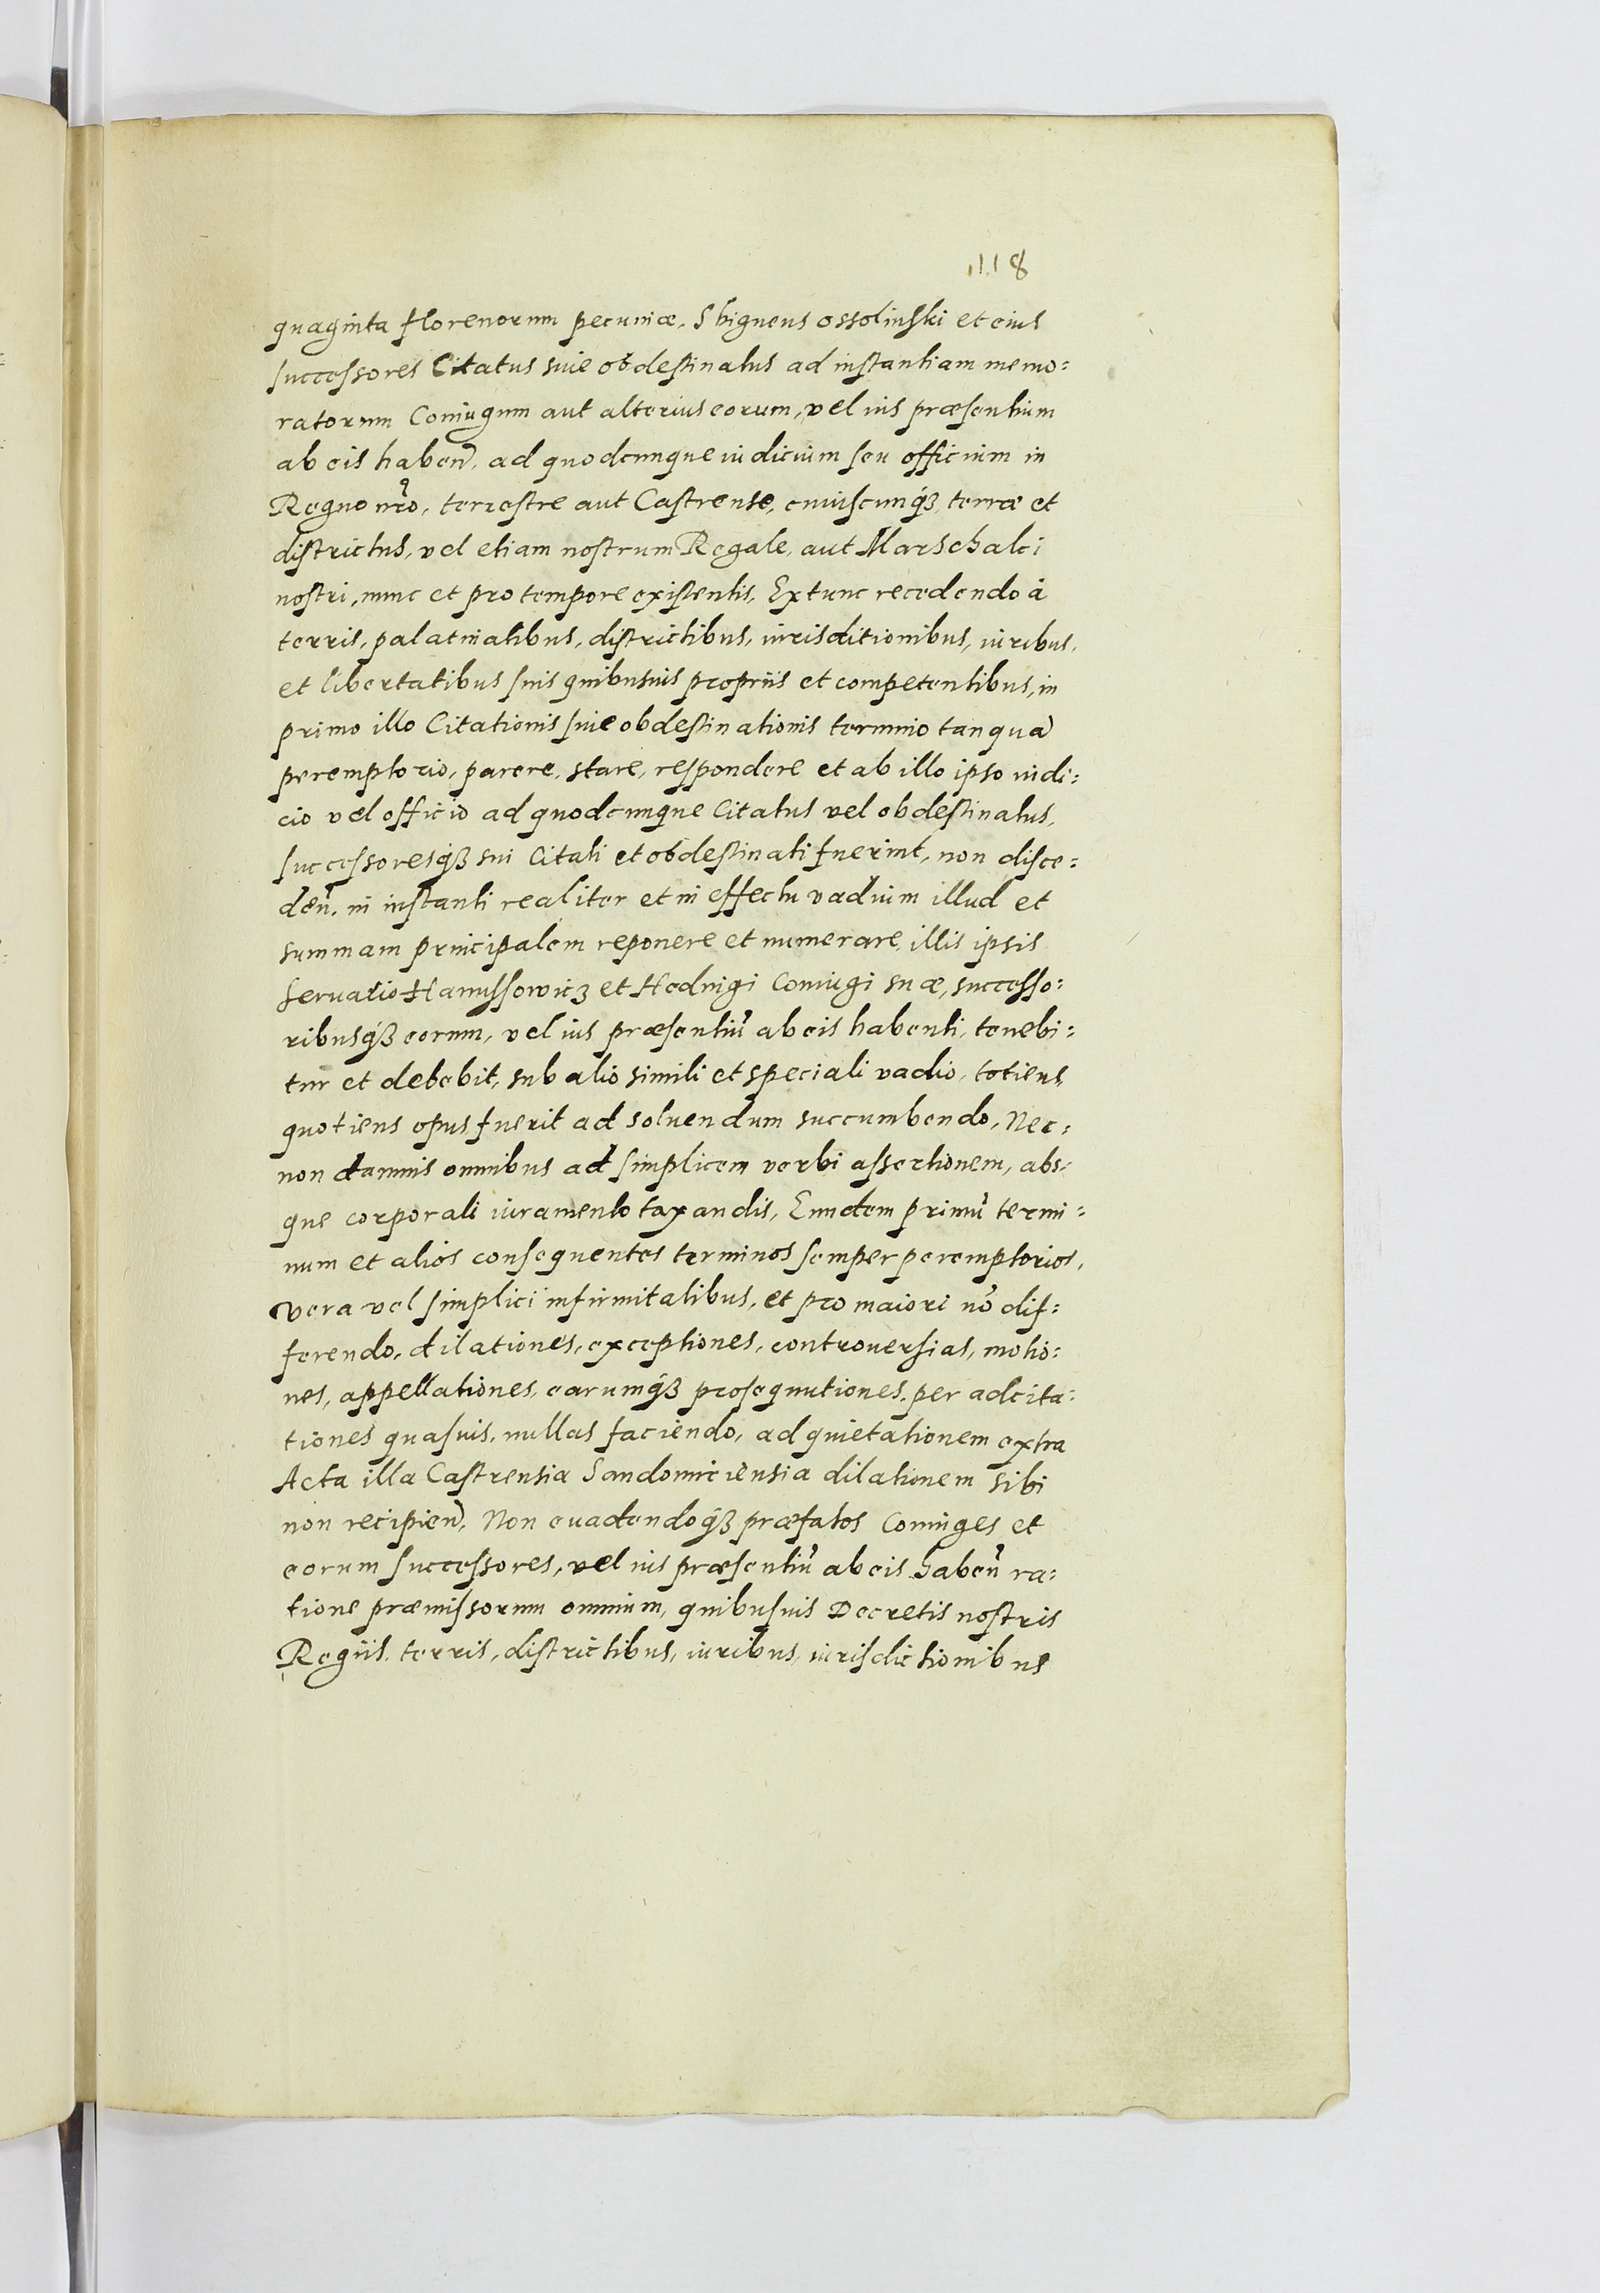 1118
quaginta florenorum pecuniæ. Sbigneus ossolinski et eius
successores Citatus siue obdestinatus ad instantiam memo:
ratorum Coniugum aut alterius eorum, vel ius præsentium
ab eis haben̄. ad quodcunque iudicium seu officium in
Regno nr̄o, terrestre aut Castrense, cuiuscunqȝ, terræ et
districtus, vel etiam nostrum Regale, aut Marschalci
nostri, nunc et pro tempore existentis, Extunc recedendo à
terris, palatinatibus, districtibus, iurisditionibus, iuribus,
et libertatibus suis quibusuis propriis et competentibus, in
primo illo Citationis siue obdestinationis termino tanquā
peremptorio, parere, stare, respondere et ab illo ipso iudi:
cio vel officio ad quodcunque Citatus vel obdestinatus,
successoresqȝ sui Citati et obdestinati fuerint, non disce:
den̄. in instanti realiter et in effectu vadium illud et
summam principalem reponere et numerare, illis ipsis
Seruatio Hanussowicz et Heduigi Coniugi suæ, successo:
ribusqȝ eorum, vel ius præsentiū ab eis habenti, tenebi:
tur et debebit, sub alio simili et speciali vadio, totiens
quotiens opus fuerit ad soluendum succumbendo, Nec:
non damnis omnibus ad simplicem verbi assertionem, abs:
que corporali iuramento taxandis, Eundem primū termi:
num et alios consequentes terminos semper peremptorios,
vera vel simplici infirmitatibus, et pro maiori nō dif:
ferendo, dilationes, exceptiones, controuersias, motio:
nes, appellationes, earumqȝ prosequutiones, per adcita:
tiones quasuis, nullas faciendo, ad quietationem extra
Acta illa Castrensia Sandomiriensia dilationem sibi
non recipien̄. Non euadendoqȝ præfatos Coniuges et
eorum successores, vel ius præsentiū ab eis haben̄ ra:
tione præmissorum omnium, quibusuis Decretis nostris
Regiis, terris, districtibus, iuribus, iurisdictionibus